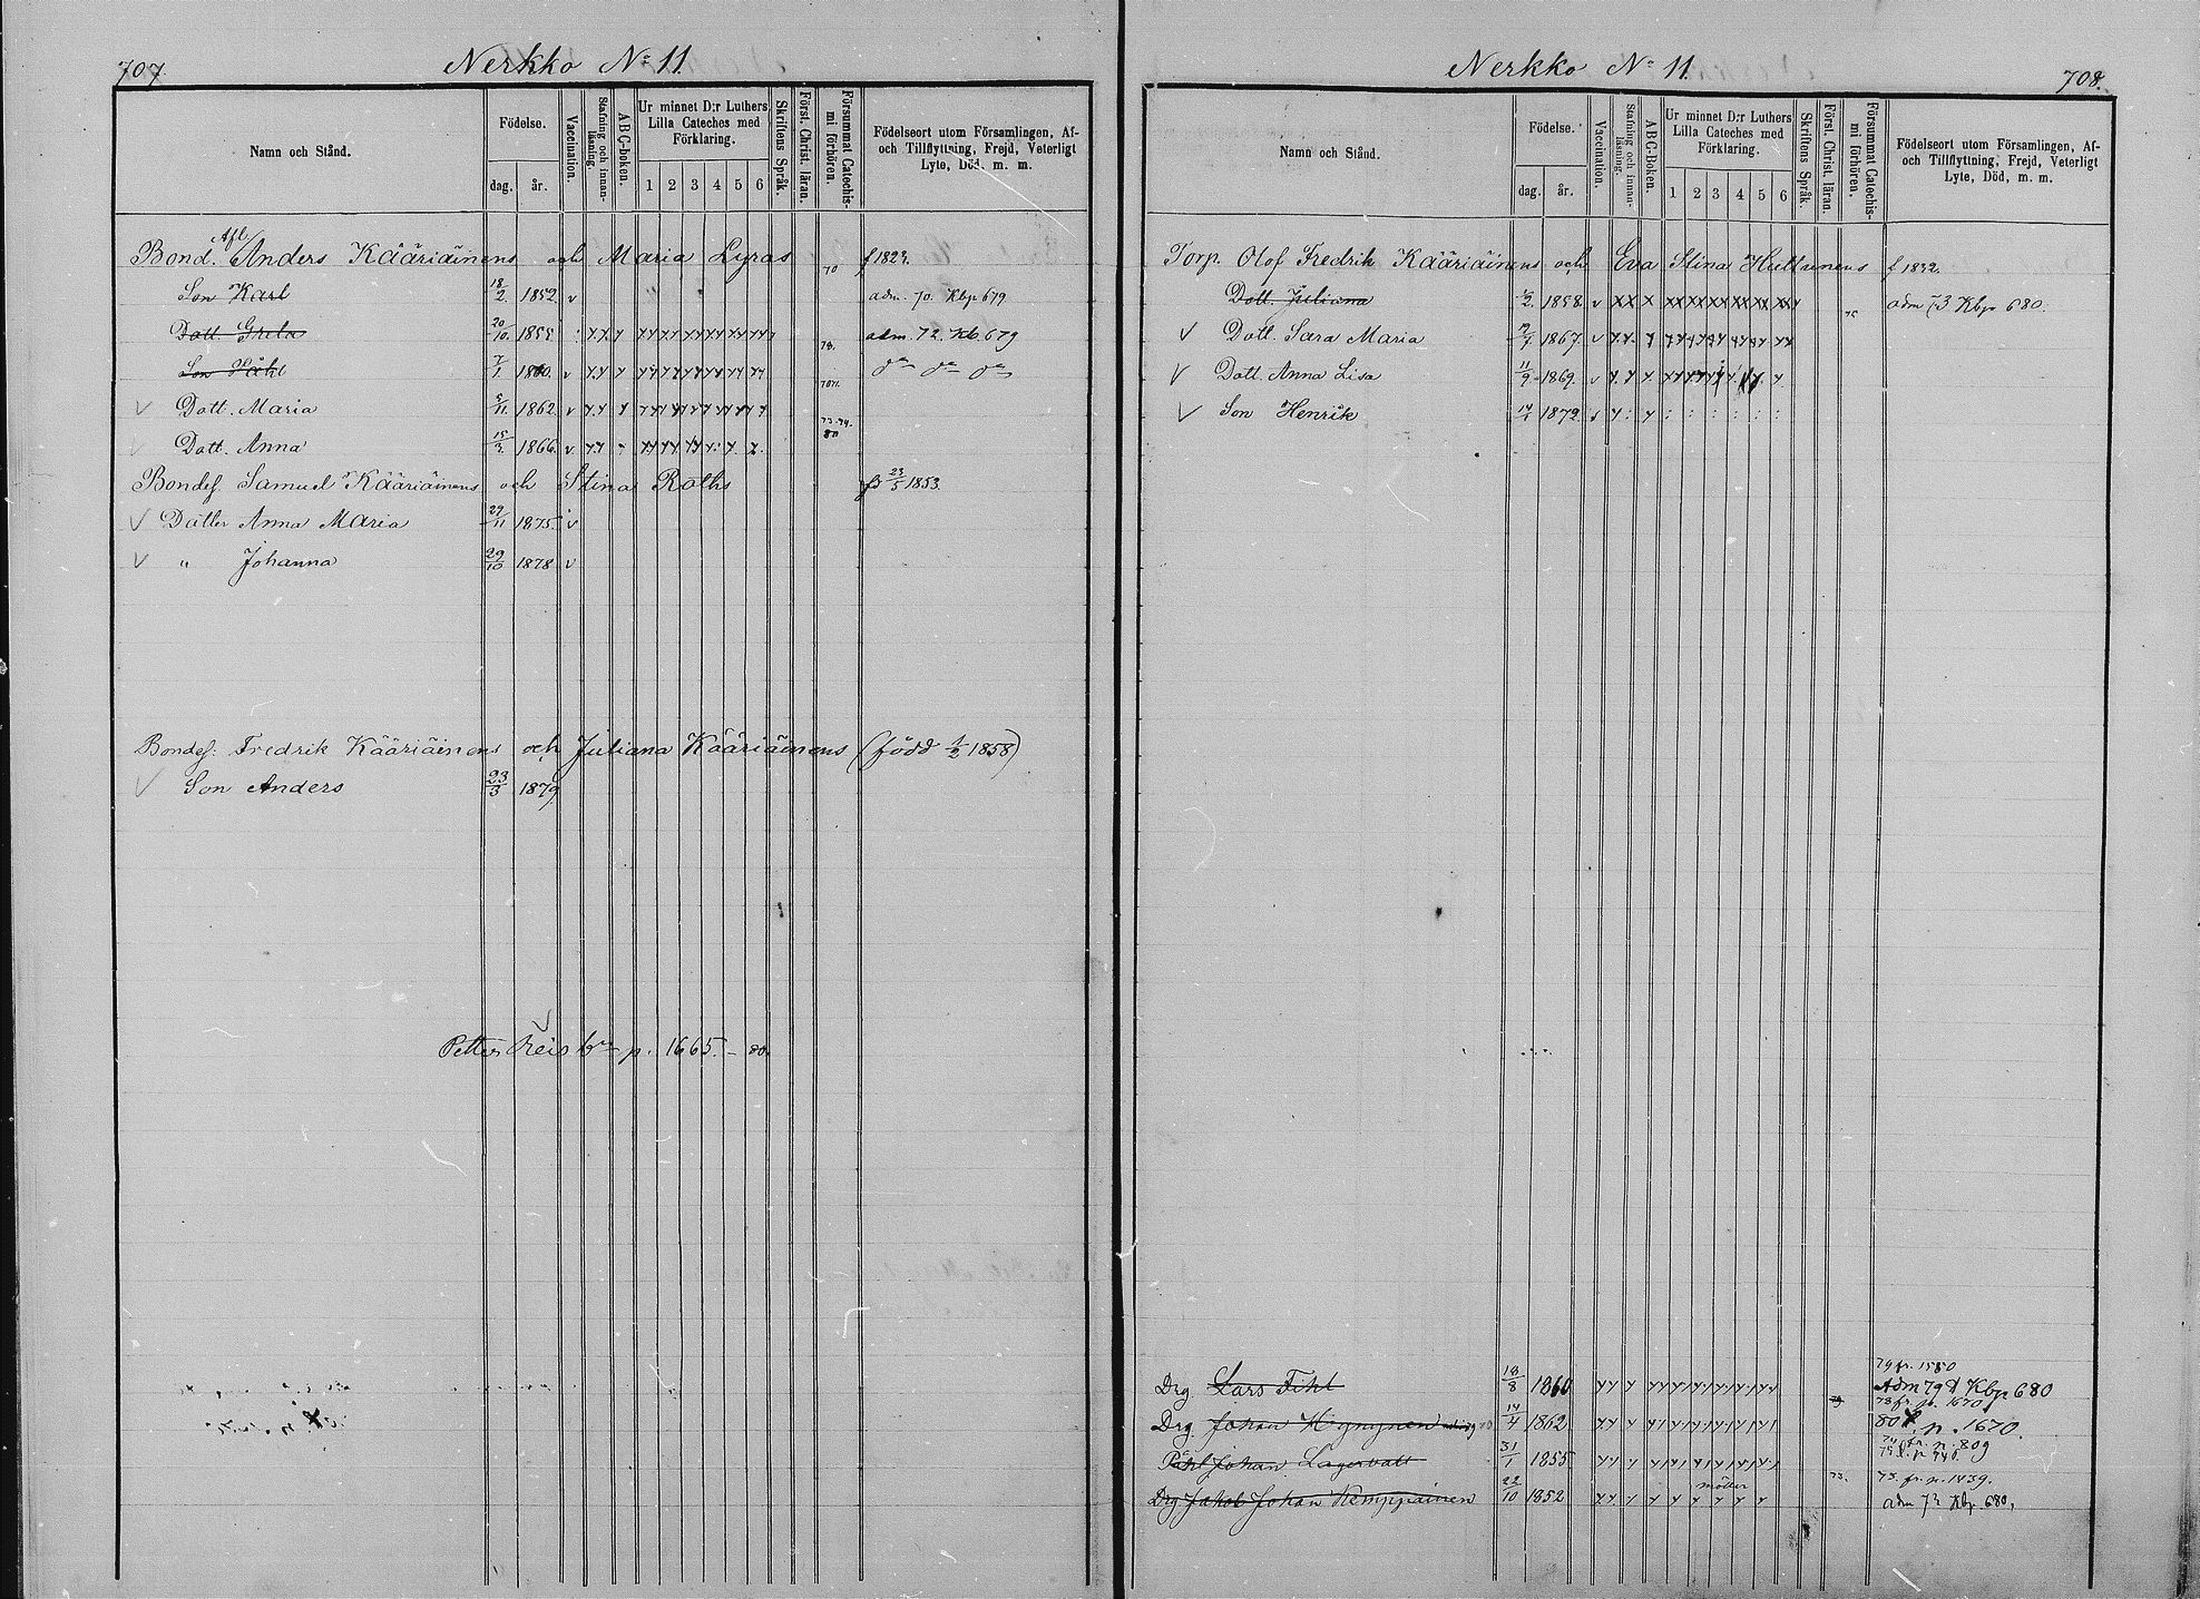 707.
Nerkko No 11.
Namn och Stånd.
Födelse.
dag. år.
Vaccination.
Stafning och innan-läsning.
ABC-boken.
Ur minnet D:r Luthers
Lilla Cateches med
Förklaring.
1 2 3 4 5 6
Skriftens Språk.
Först. Christ. läran.
Försummat Catechis-
mi förhören.
Födelseort utom Församlingen, Af-
och Tillflyttning, Frejd, Veterligt
Lyte, Död, m. m.
Afl.
Bond. Anders Kääriäinens och Maria Lyras 70 f 1823.
Son Karl 18/2. 1852 v adm. 70. Kbp 679
Dott. Greta 20/10. 1855 78. adm. 72. Kb. 679
Son Påhl 7/1. 1860. v do do do
v Dott. Maria 5/11. 1862 v 73.74.
v Dott. Anna 15/3. 1866. v 80
Bondes. Samuel Kääriäinens och Stina Roths fs 23/5 1853.
v Dötter Anna Maria 29/11 1875. v
v " Johanna 29/10 1878 v
Bondes: Fredrik Kääriäinens och Juliana Kääriäinens (född 1/2 1858)
v Son Anders 23/3 1879
Petter Reis bn p. 1665. - 80.
Nerkko No 11.
708.
Namn och Stånd.
Födelse.
dag. år.
Vaccination.
Stafning och innan-läsning.
ABC-Boken.
Ur minnet D:r Luthers
Lilla Cateches med
Förklaring.
1 2 3 4 5 6
Skriftens Språk.
Först. Christ. läran.
Försummat Catechis-
mi förhören.
Födelseort utom Församlingen, Af-
och Tillflyttning, Frejd, Veterligt
Lyte, Död, m. m.
Torp. Olof Fredrik Kääriäinens och Eva Stina Huttunens f 1832.
Dott. Juliana 1/2. 1858. v 75 adm 73 Kbp 680.
v Dott. Sara Maria 1867. v
v Dott. Anna Lisa 11/9 1869. v
v Son Henrik 1872.
79 fr. 1580
Drg. Lars Tihl 18/8 1860 Adm 79 Kbp 680
78 fr. p. 1670
Drg. Johan Hynynen 14/4 1862 80 p. 1670.
fr. p. 809
Påhl Johan Lagervall 31/1 1855
73. fr. p. 1439.
Drg Jakob Johan Kemppainen 22/10 1852 73. adm 73 Kbp 680.